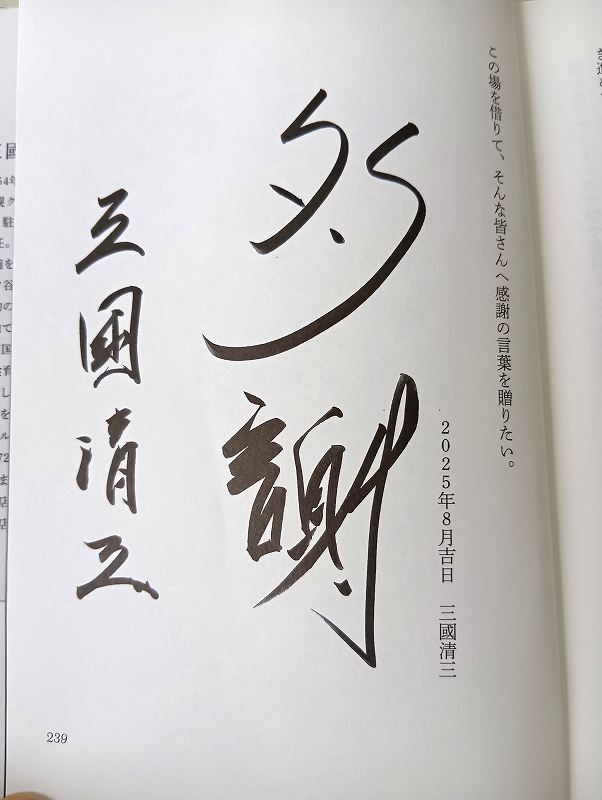 この場を借りて、そんな皆さんへ感謝の言葉を贈りたい。
2025年8月吉日　三國清三
多謝
三國清三
239